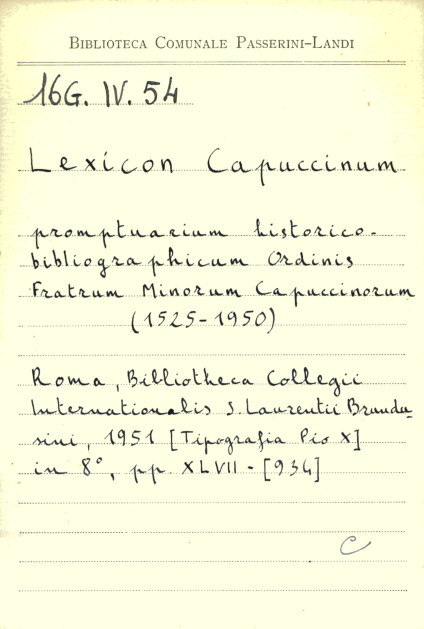 BIBLIOTECA COMUNALE PASSERINI-LANDI
16G. IV. 54
Lexicon Capuccinum
promptuarium historico-
bibliographicum Ordinis
Fratrum Minorum Capuccinorum
(1525-1950)
Roma, Bibliotheca Collegii
Internationalis S. Laurentii Brundu=
sini, 1951 [Tipografia Pio X]
in 8°, pp. XLVII - [934]
C